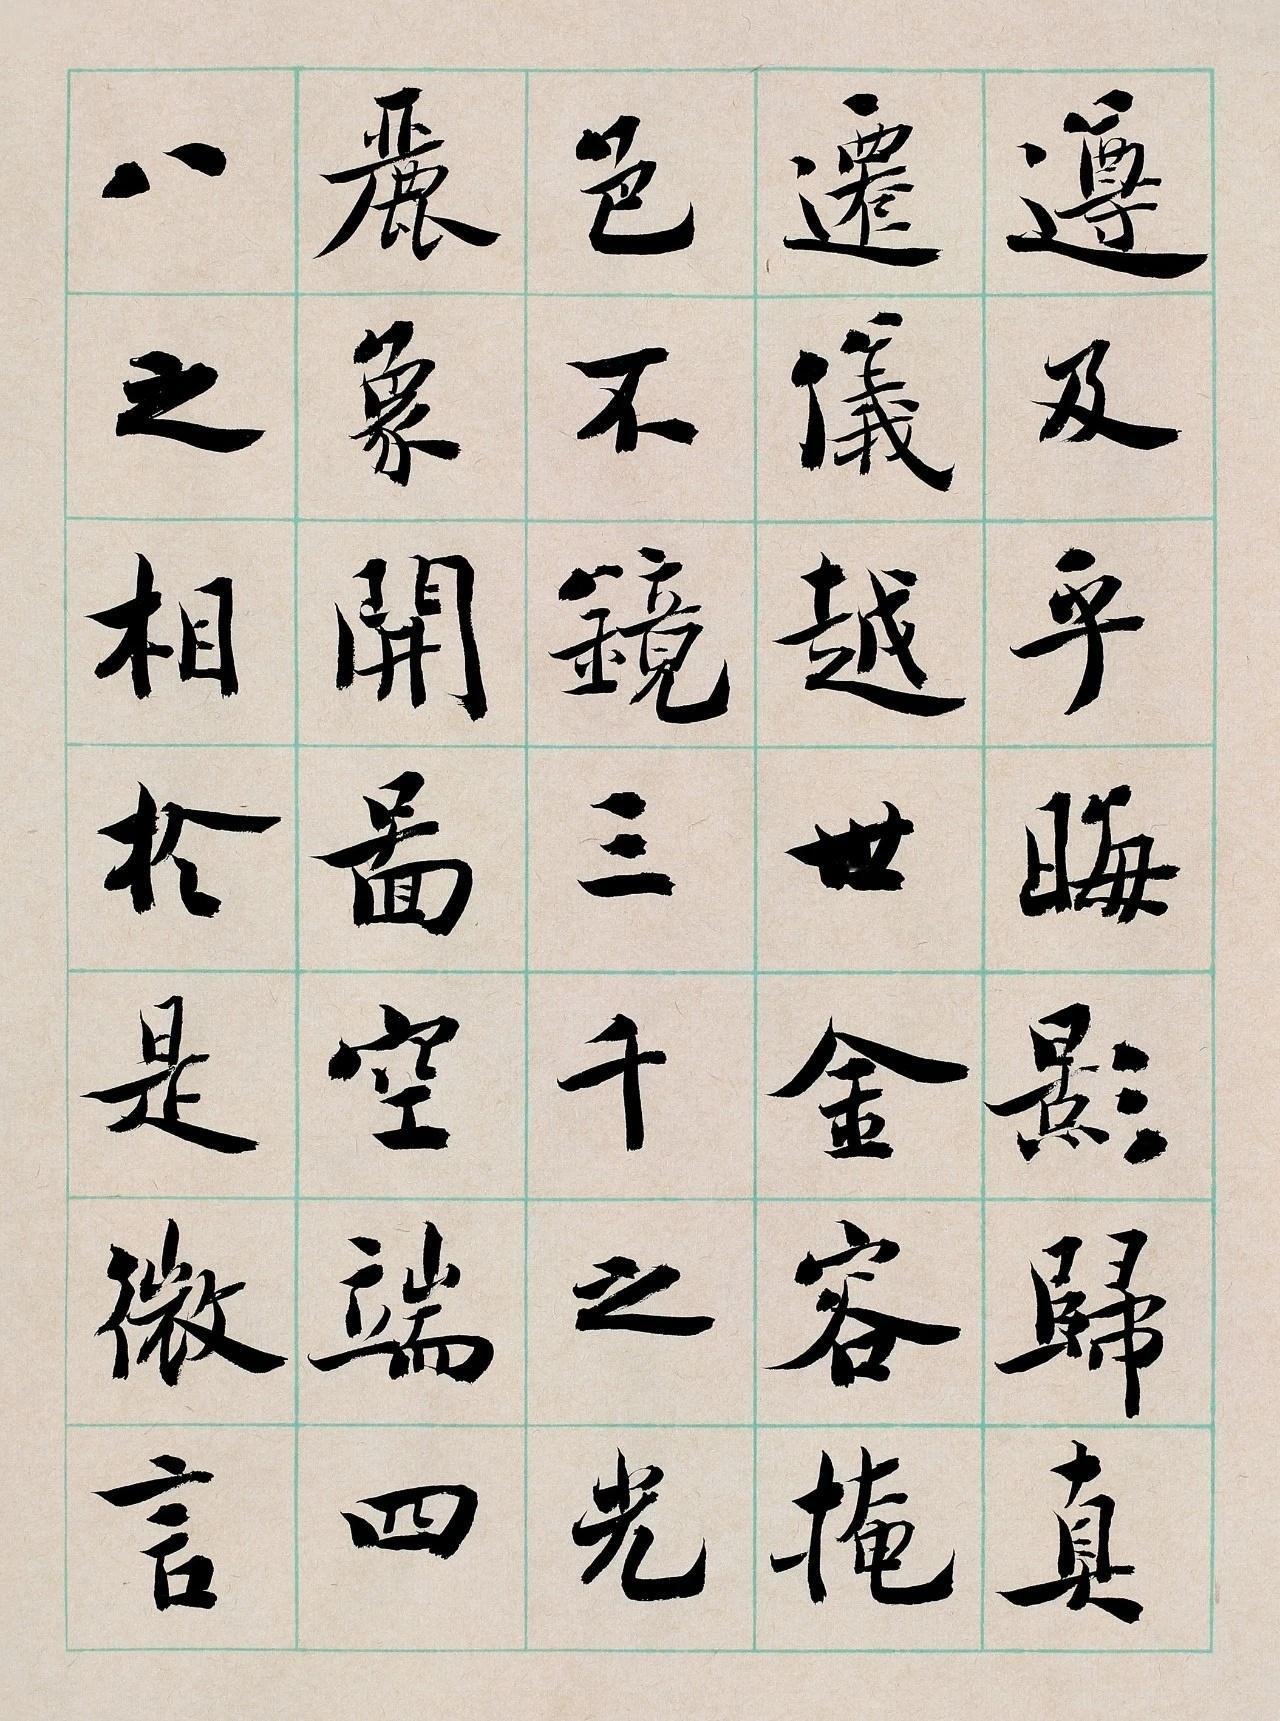 遵及乎晦影歸真
遷儀越世金容掩
色不鏡三千之光
麗象開圖空端四
八之相於是微言